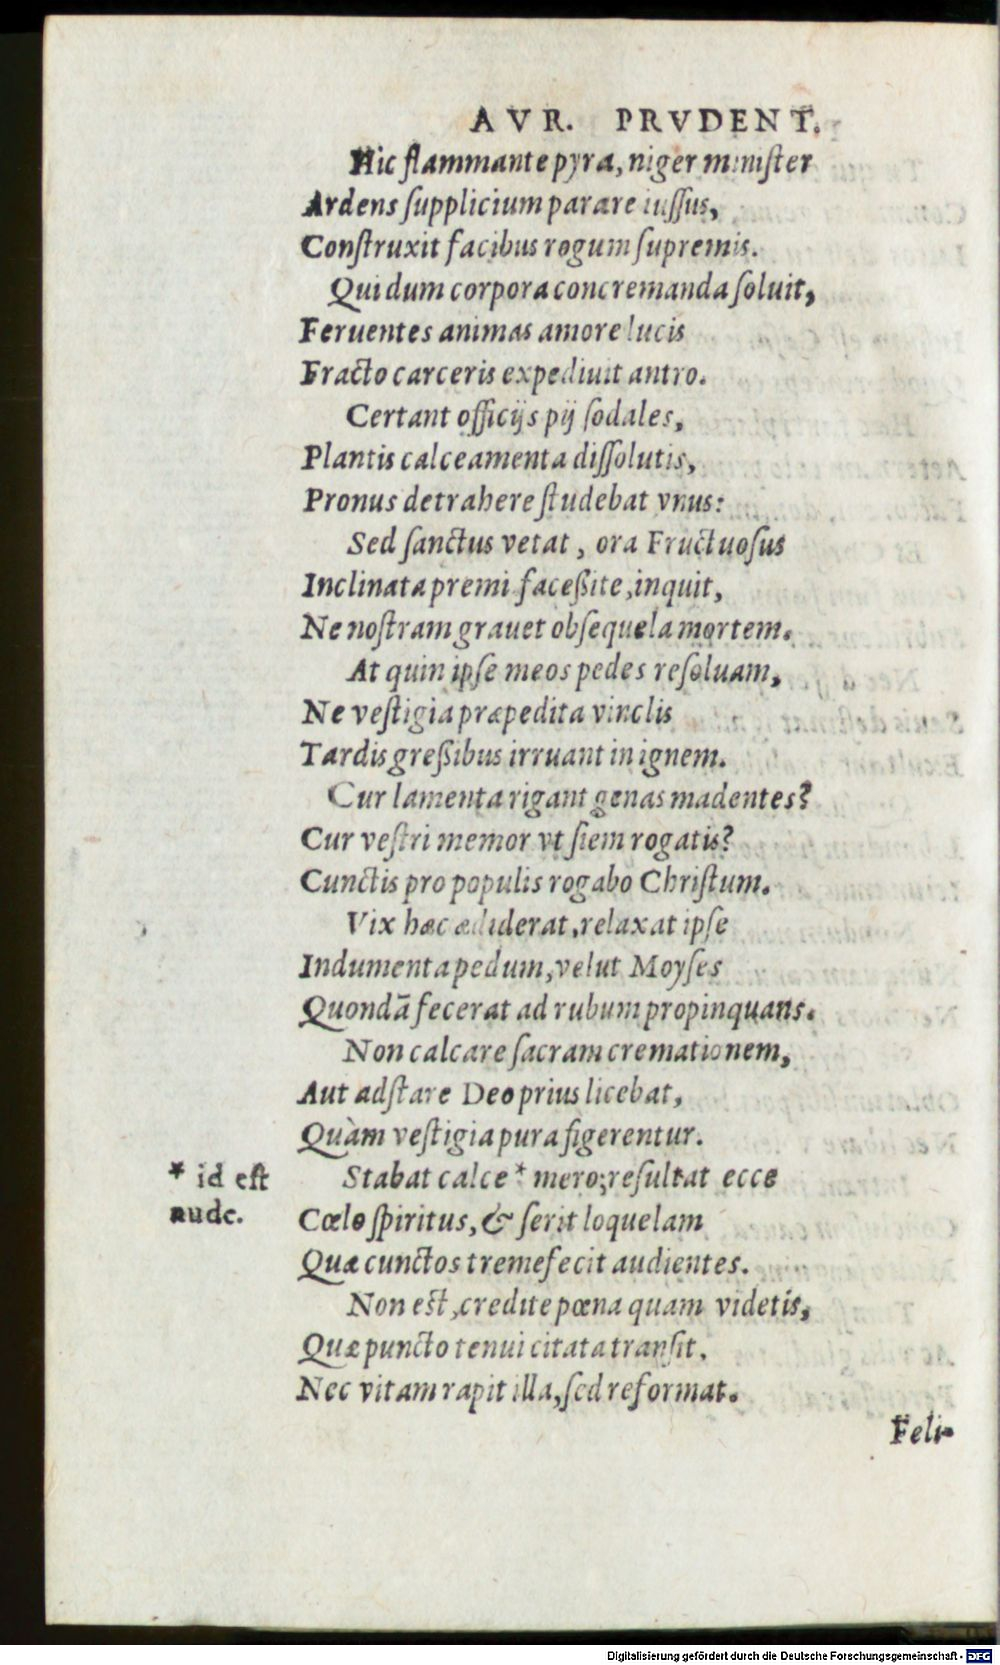 AVR. PRVDENT.
Hic flammante pyra, niger miniſter
Ardens ſupplicium parare iuſſus,
Conſtruxit facibus rogum ſupremis.
Qui dum corpora concremanda ſoluit,
Feruentes animas amore lucis
Fracto carceris expediuit antro.
Certant officijs pij ſodales,
Plantis calceamenta diſſolutis,
Pronus detrahere ſtudebat vnus:
Sed ſanctus vetat, ora Fructuoſus
Inclinata premi faceßite, inquit,
Ne noſtram grauet obſequela mortem.
At quin ipſe meos pedes reſoluam,
Ne veſtigia præpedita vinclis
Tardis greßibus irruant in ignem.
Cur lamenta rigant genas madentes?
Cur veſtri memor vt ſiem rogatis?
Cunctis pro populis rogabo Chriſtum.
Vix hæc ædiderat, relaxat ipſe
Indumenta pedum, velut Moyſes
Quondā fecerat ad rubum propinquans.
Non calcare ſacram cremationem,
Aut adſtare Deo prius licebat,
Quàm veſtigia pura figerentur.
* id eſt
nude.
Stabat calce * mero; reſultat ecce
Cœlo ſpiritus, & ſerit loquelam
Quæ cunctos tremefecit audientes.
Non eſt, credite pœna quam videtis,
Quæ puncto tenui citata tranſit,
Nec vitam rapit illa, ſed reformat.
Feli-
Digitalisierung gefördert durch die Deutsche Forschungsgemeinschaft - DFG